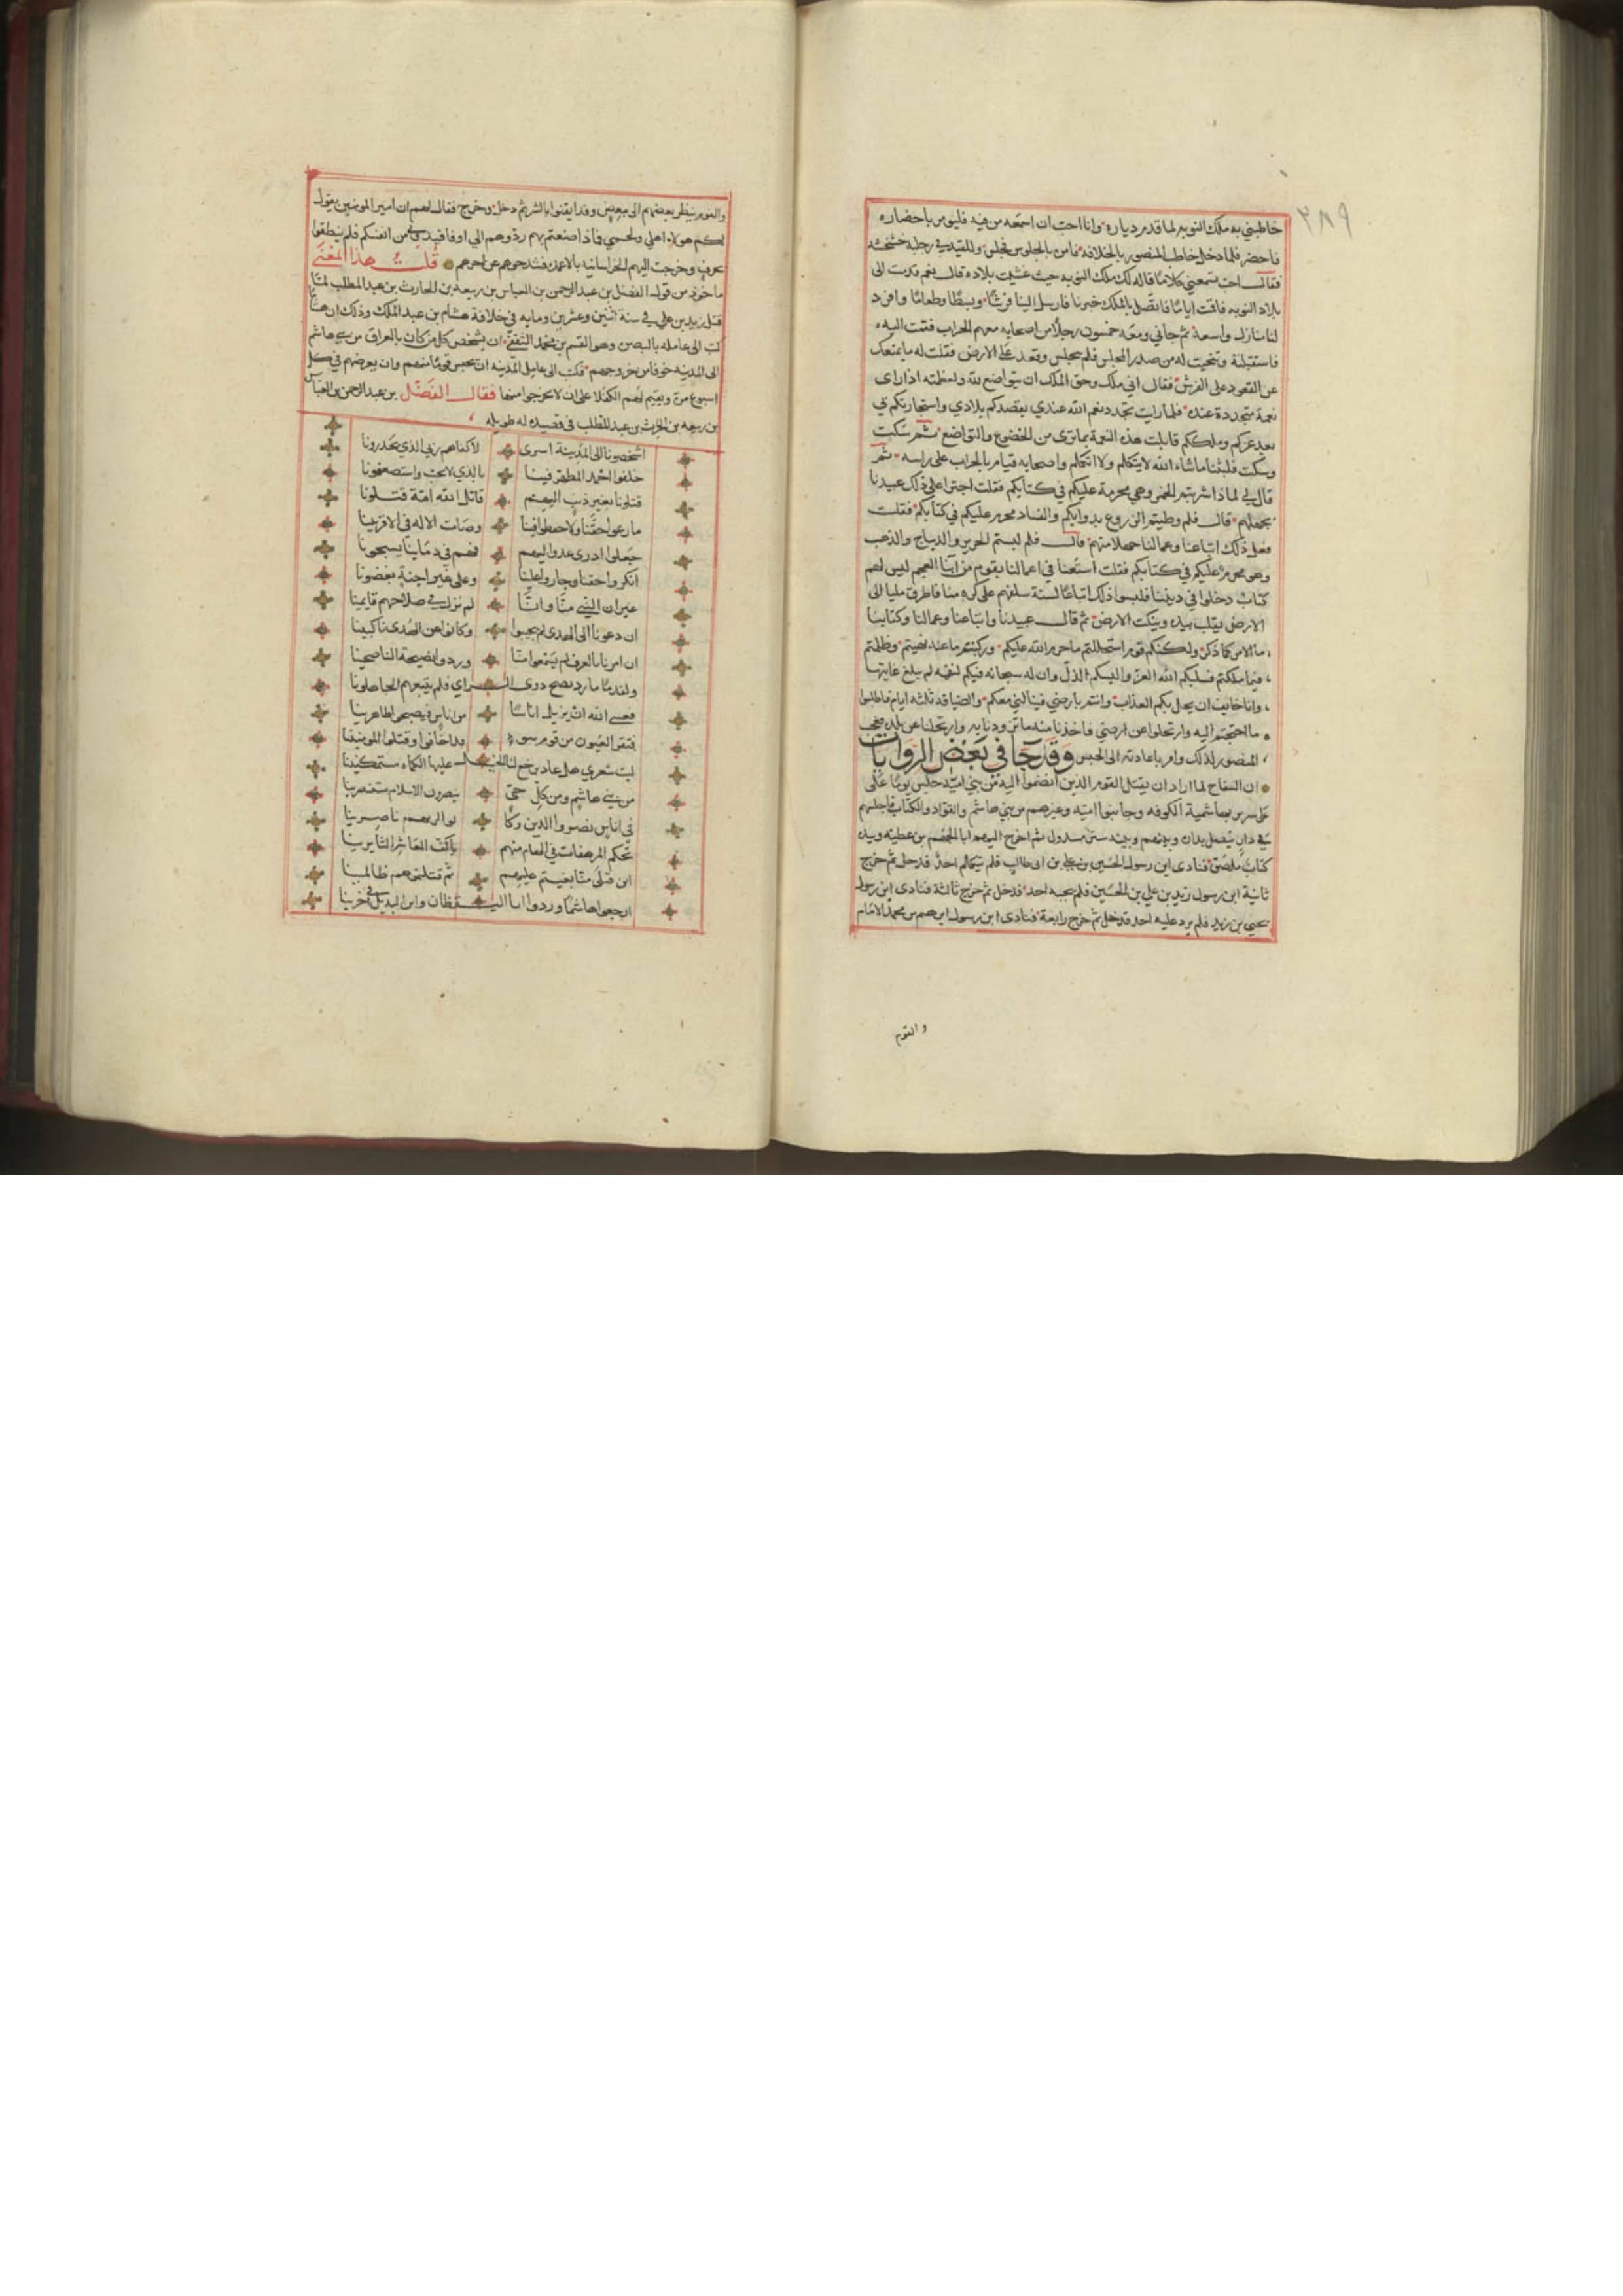 ٢٨٩
خاطبني به ملك النوبه لما قدم دياره وانا احب ان اسمعه من فيه فليومر باحضاره
فاحضر فلما دخل خاطب المنصور بالخلافه فامره بالجلوس فجلس وللقيد في رجله خشخشه
فقال احب تسمعني كلاما قاله لك ملك النوبه حيث غشيت بلاده قال نعم قدمت الى
بلاد النوبه فاقمت اياما فاتصل بالملك خبرنا فارسل الينا فرشا وبسطا وطعاما وافرد
لنا منازل واسعة ثم جاني ومعه خمسون رجلا من اصحابه معهم الحراب فقمت اليه
فاستقبلته وتنحيت له من صدر المجلس فلم يجلس وقعد على الارض فقلت له ما يمنعك
عن القعود على الفرش فقال اني ملك وحق الملك ان يتواضع لله ولعظمته اذا راى
نعمة متجددة عنده فلما رايت تجدد نعم الله عندي بقصدكم بلادي واستجارتكم بي
بعد عزكم وملككم قابلت هذه النعمة بما ترى من الخضوع والتواضع ثم سكت
وسكت فلبثنا ماشاء الله لا يتكلم ولا اتكلم واصحابه قيام بالحراب على راسه ثم
قال لي لماذا شربتم الخمر وهي محرمة عليكم في كتابكم فقلت اجترا على ذلك عبيدنا
بجهلهم قال فلم وطيتم الزروع بدوابكم والفساد محرم عليكم في كتابكم فقلت
فعل ذلك اتباعنا وعمالنا جهلا منهم قال فلم لبستم الحرير والديباج والذهب
وهو محرم عليكم في كتابكم فقلت استعنا في اعمالنا بقوم من ابنا العجم ليس لهم
كتاب دخلوا في ديننا فلبسوا ذلك اتباعا لسنة سلفهم على كره منا فاطرق مليا الى
الارض يقلب يده وينكت الارض ثم قال عبيدنا واتباعنا وعمالنا وكتابنا
ما الامر كما ذكرت ولكنكم قوم استحللتم ما حرم الله عليكم وركبتم ما عنه نهيتم وظلمتم
فيما ملكتم فسلبكم الله العز والبسكم الذل وان له سبحانه فيكم لنقمه لم يبلغ غايتها
وانا خايف ان يحل بكم العذاب وانتم بارضي فينالني معكم والضيافه ثلثه ايام فاطلبوا
ما احتجتم اليه وارتحلوا عن ارضي فاخذنا منه ما تزودنا به وارتحلنا عن بلده فعجب
المنصور لذلك وامر باعادته الى الحبس وقد جا في بعض الروايات
ان السفاح لما اراد ان يقتل القوم الذين انضموا اليه من بني اميه جلس يوما على
على سرير بهاشمية الكوفه وجا بنوا اميه وغيرهم من بني هاشم والقواد والكتاب فاجلسهم
في دار يتصل بداره وبينهم وبينه ستر مسدول ثم اخرج اليهم ابا الجهم بن عطيه وبيده
كتاب ملصق فنادى اين رسول الحسين بن علي بن ابي طالب فلم يتكلم احد فدخل ثم خرج
ثانية اين رسول زيد بن علي بن الحسين فلم يجبه احد فدخل ثم خرج ثالثة فنادى اين رسول
يحيى بن زيد فلم يرد عليه احد فدخل ثم خرج رابعة فنادى اين رسول ابرهيم بن محمد الامام
والقوم
والقوم ينظر بعضهم الى بعض وقد ايقنوا بالشر ثم دخل وخرج فقال لهم ان امير المومنين يقول
لكم هولاء اهلي ولحمي فماذا صنعتم بهم ردوهم الي او فاقيدوني من انفسكم فلم ينطقوا
بحرف وخرجت اليهم الخراسانيه بالاعمده فشدخوهم عن اخرهم قلت هذا المعنى
ماخوذ من قول الفضل بن عبد الرحمن بن العباس بن ربيعة بن الحارث بن عبد المطلب لما
قتل زيد بن علي في سنة اثنين وعشرين ومايه في خلافة هشام بن عبد الملك وذلك ان هشاما
كتب الى عامله بالبصره وهو القسم بن محمد الثقفي ان يشخص كل من كان بالعراق من بني هاشم
الى المدينه خوفا من خروجهم فكتب الى عامل المدينه ان يحبس قوما منهم وان يعرضهم في كل
اسبوع مرة ويقيم لهم الكفلا على ان لا يخرجوا منها فقال الفضل بن عبد الرحمن بن العباس
بن ربيعه بن الحرث بن عبد المطلب في قصيده له طويله
اشخصونا الى المدينة اسرى لا كفاهم ربي الذي يحذرونا
خلفوا احمد المطهر فينا بالذي لا يحب واستضعفونا
قتلونا بغير ذنب اليهم قاتل الله امة قتلونا
ما رعوا حقنا ولا حفظوا فينا وصات الاله في الاقربينا
جعلوا ادرى عدو اليهم فهم في دماينا يسبحونا
انكروا حقنا وجاروا علينا وعلى غير احنة بغضونا
غير ان النبي منا وانا لم نزل في صلاحهم قايمينا
ان دعونا الى الهدى لم يجيبوا وكانوا عن الهدى ناكبينا
ان امرنا بالعرف لم يسمعوا منا وردوا نصيحة الناصحينا
ولقدما ما رد نصح ذوى الراي فلم يتبعهم الجاهلونا
فعسى الله ان يزيل اناسا من اناس فيصبحوا ظاهرينا
فتقر العيون من قوم سوء قد اخافوا وقتلوا المومنينا
ليت شعري هل عاد بن خع لنا الخيل عليها الكماه مستمكنينا
من بني هاشم ومن كل حي ينصرون الاسلام مستنصرينا
في اناس نصروا الدين وكانوا لربهم ناصرينا
تحكم المرهفات في الهام منهم باكف المعاشر الثايرينا
اين قتلى منا بغيتم عليهم ثم قتلتموهم ظالمينا
ارجعوا هاشما وردوا ابا اليقظان وابن البديل في اخرينا